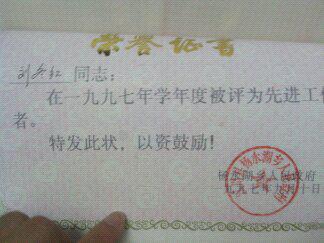 荣誉证书
同志：
在一九九七年学年度被评为先进工作
者。
特发此状，以资鼓励！
杨水湖乡人民政府
九九七年九月十日